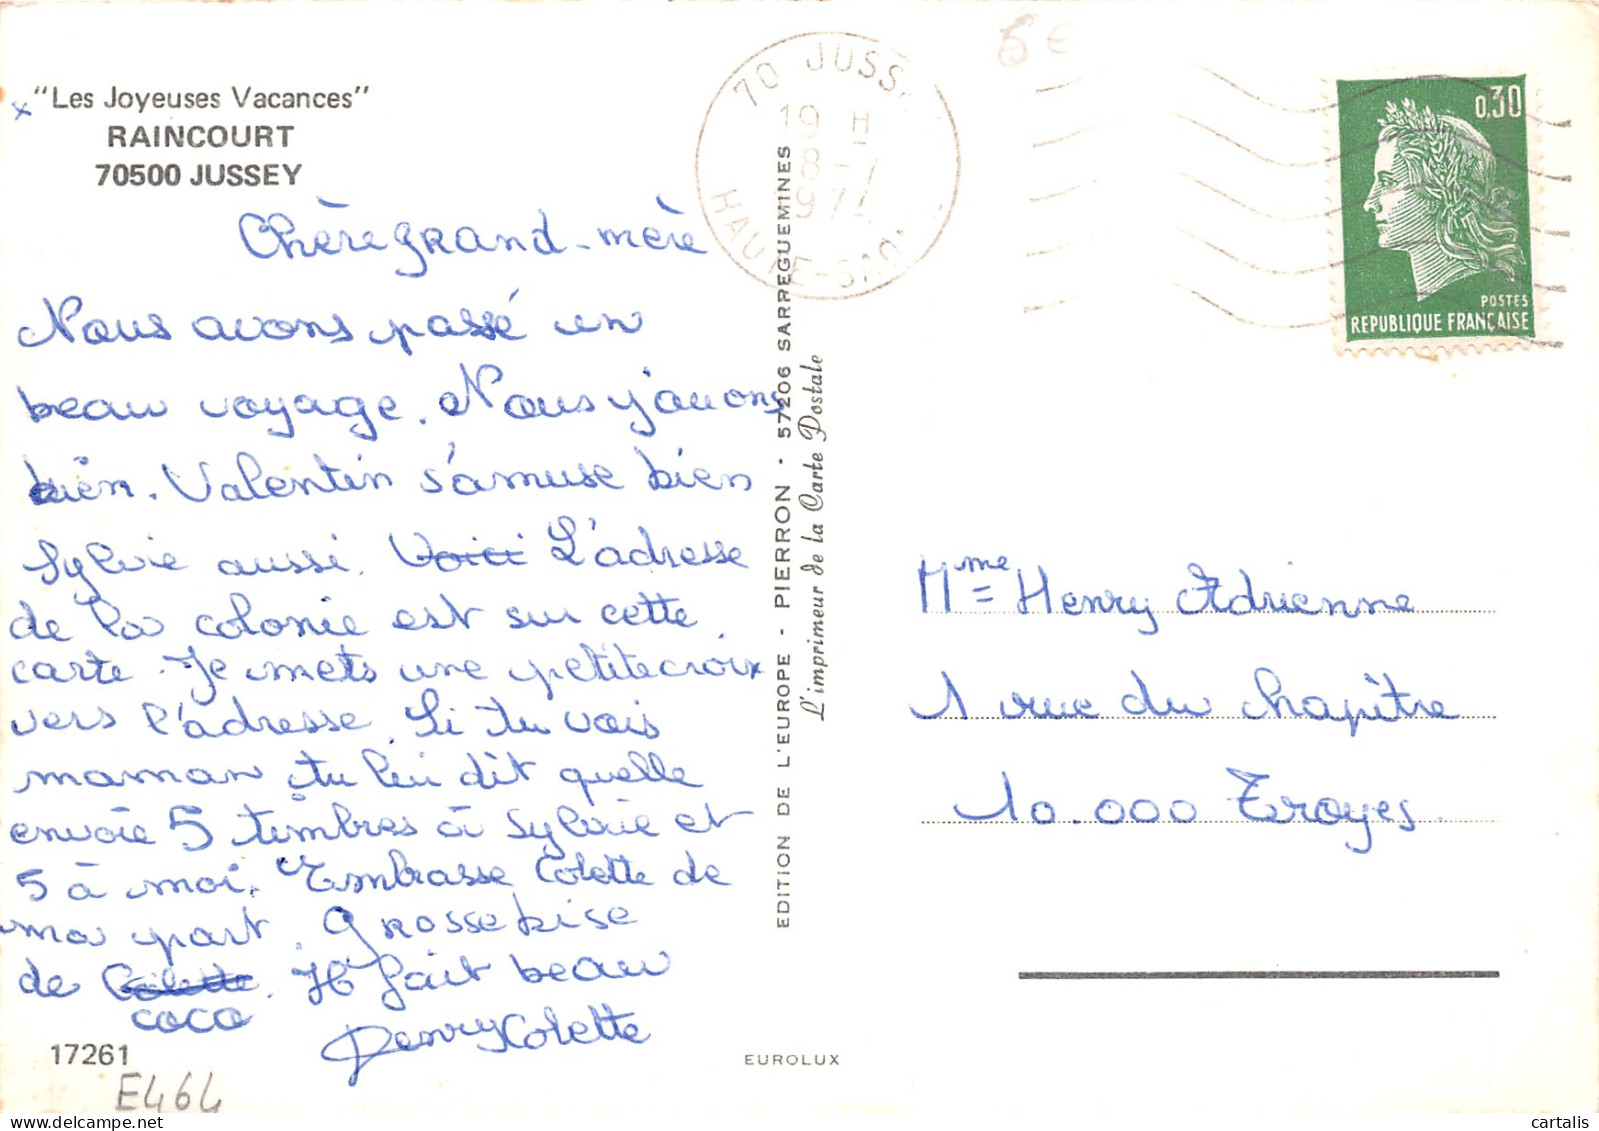 "Les Joyeuses Vacances"
x
RAINCOURT
70500 JUSSEY
Chère grand-mère
Nous avons passé un
beau voyage. Nous y'avons
bien. Valentin s'amuse bien
Sylvie aussi. Voici L'adresse
de la colonie est sur cette
carte. Je mets une petite croix
vers l'adresse. Si tu vois
maman tu lui dit quelle
envoie 5 timbres à Sylvie et
5 à moi. Embrasse Colette de
ma part. Grosse bise
de Colette. Il fait beau
coco
Henry Colette
17261
E464
EDITION DE L'EUROPE - PIERRON - 57206 SARREGUEMINES
L'imprimeur de la Carte Postale
EUROLUX
70 JUSS
19 H
8-7
1974
HAUTE-SAO
6 €
0,30
POSTES
REPUBLIQUE FRANÇAISE
Mme Henry Adrienne
1 rue du Chapitre
10.000 Troyes.
cartalis
delcampe.net